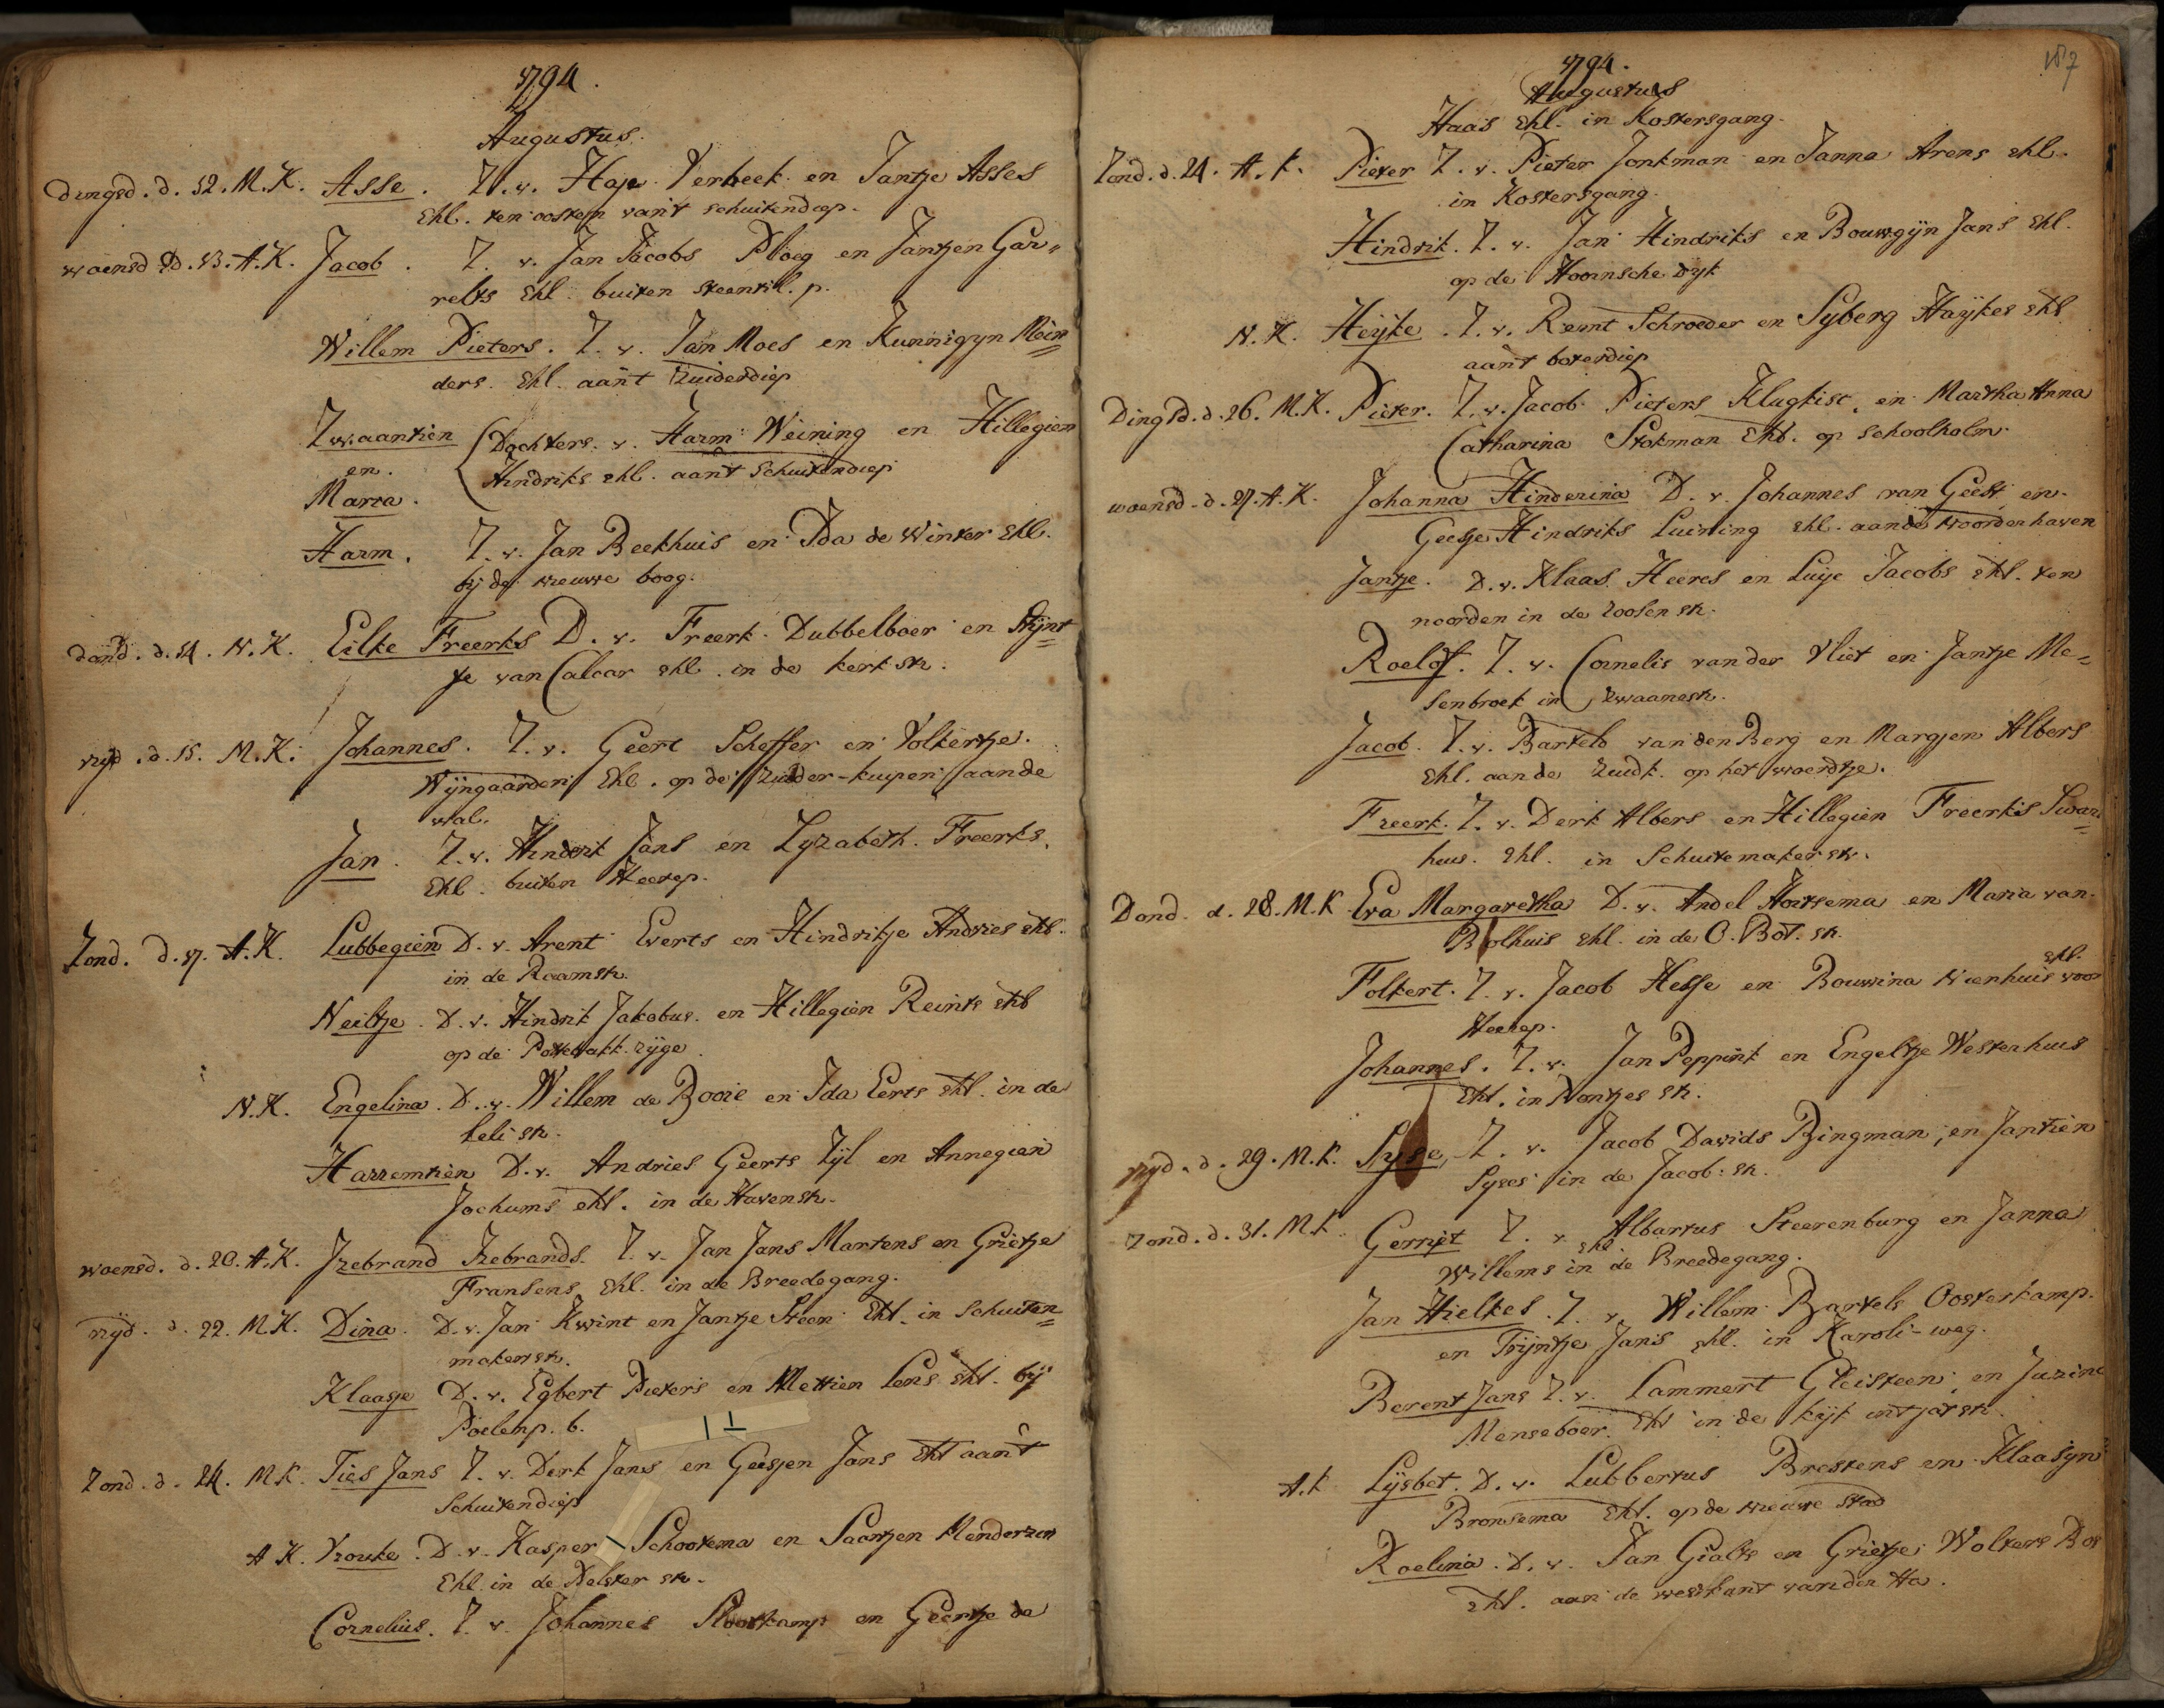 1794.
Augustus.
Dingsd. d. 12. M.K. Asse. Z. v. Haje Verbeek en Jantje Asses
Ehl. ten oosten van't schuitendiep.
woensd d. 13. A.K. Jacob. Z. v. Jan Jacobs Ploeg en Jantjen Gar„
relts Ehl. buiten steentil. p.
Willem Pieters. Z. v. Jan Moes en Kunnigyn Mein=
ders. Ehl. aan't Zuiderdiep
Zwaantien Dochters. v. Harm Weining en Hillegien
en. Hindriks ehl. aan't Schuitendiep
Marra.
Harm. Z. v. Jan Beekhuis en Ida de Winter Ehl.
by de nieuwe boog.
dond. d. 14. N.K. Eilke Freerks D. v. Freerk Dubbelboer en Stijnt=
je van Calcar ehl. in de kerk str.
vryd. d. 15. M.K. Johannes. Z. v. Geert Scheffer en Volkertje.
Wijngaarden Ehl. op de Zuider-kuipen aande
wal.
Jan. Z. v. Hindrik Jans en Lyzabeth Freerks.
Ehl. buiten Heerep.
Zond. d. 17. A.K. Lubbegien D. v. Arent Everts en Hindrikje Andries ehl.
in de Raamstr.
Neeltje. D. v. Hindrik Jakobus en Hillegien Reints ehl
op de Pottebakk. rijge.
N.K. Engelina. D. v. Willem de Booie en Ida Eerts ehl. in de
leli str.
Harremtien D. v. Andries Geerts Zyl en Annegien
Jochums ehl. in de Havenstr.
woensd. d. 20. A.K. Izebrand Izebrands. Z. v. Jan Jans Martens en Grietje
Fransens Ehl. in de Breedegang.
vryd. d. 22. M.K. Dina. D. v. Jan Kwint en Jantje Steen Ehl. in Schuiten=
makerstr.
Klaasje D. v. Egbert Pieters en Mettien Lens ehl. by
Poelenp. b.
Zond. d. 24. M.K. Ties Jans Z. v. Derk Jans en Geesjen Jans Ehl aan't
Schuitendiep
A K. Vrouke. D. v. Kasper Schootema en Saartjen
Ehl. in de Pelster str.
Cornelius. Z. v. Johannes Slootkamp en Geertje de
187
1794.
Augustus
Haas Ehl. in Kostersgang.
Zond. d. 24. A. K. Pieter Z. v. Pieter Jonkman en Janna Arens ehl.
in Kostersgang.
Hindrik. Z. v. Jan Hindriks en Bouwgijn Jans Ehl.
op de Hoornsche dyk
N. K. Heijke. Z. v. Remt Schroeder en Syberg Haijkes ehl
aan't boterdiep
Dingsd. d. 26. M.K. Pieter. Z. v. Jacob Pieters Klugkist, en Martha Anna
Catharina Stokman Ehl. op schoolholm.
woensd. d. 27. A.K. Johanna Hinderina D. v. Johannes van Geest en
Geesje Hindriks Luining ehl. aande Noorderhaven
Jantje. D. v. Klaas Heeres en Luije Jacobs ehl. ten
noorden in de roosen str.
Roelof. Z. v. Cornelis van der Vliet en Jantje Me=
senbroek in Zwaanestr.
Jacob. Z. v. Bartelo van den Berg en Margjen Albers
Ehl. aande Zuidk. op het woerdtje.
Freerk. Z. v. Derk Albers en Hillegien Freerkis Swart=
huis. Ehl. in Schuitemakerstr.
Dond. d. 28. M.K. Eva Margaretha D. v. Andel Hovsema en Maria van
Bolhuis ehl. in de O. Bot. str.
Folkert. Z. v. Jacob Hesse en Bouwina Nienhuis ehl. voor
Heerep.
Johannes. Z. v. Jan Peppink en Engeltje Westerhuis
Ehl. in Nontjes str.
vryd. d. 29. M.K. Syse, Z. v. Jacob Davids Bingman, en Jantien
Syses in de Jacob. str.
Zond. d. 31. M.K. Gerrijt Z. v. Albartus Steerenburg en Janna
Willems ehl in de Breedegang.
Jan Hielkes. Z. v. Willem Bartels Oosterkamp.
en Trijntje Jans ehl. in Karoli-weg.
Berent Jans Z. v. Lammert Gleisteen en Jurina
Menseboer. Ehl in de kijk int jat str.
A.K. Lysbet. D. v. Lubbertus Brestens en Klaasyn
Bronsema Ehl. op de nieuwe stad
Roelina. D. v. Jan Gialts en Grietje Wolters Bos
Ehl. aan de westkant van den Aa.